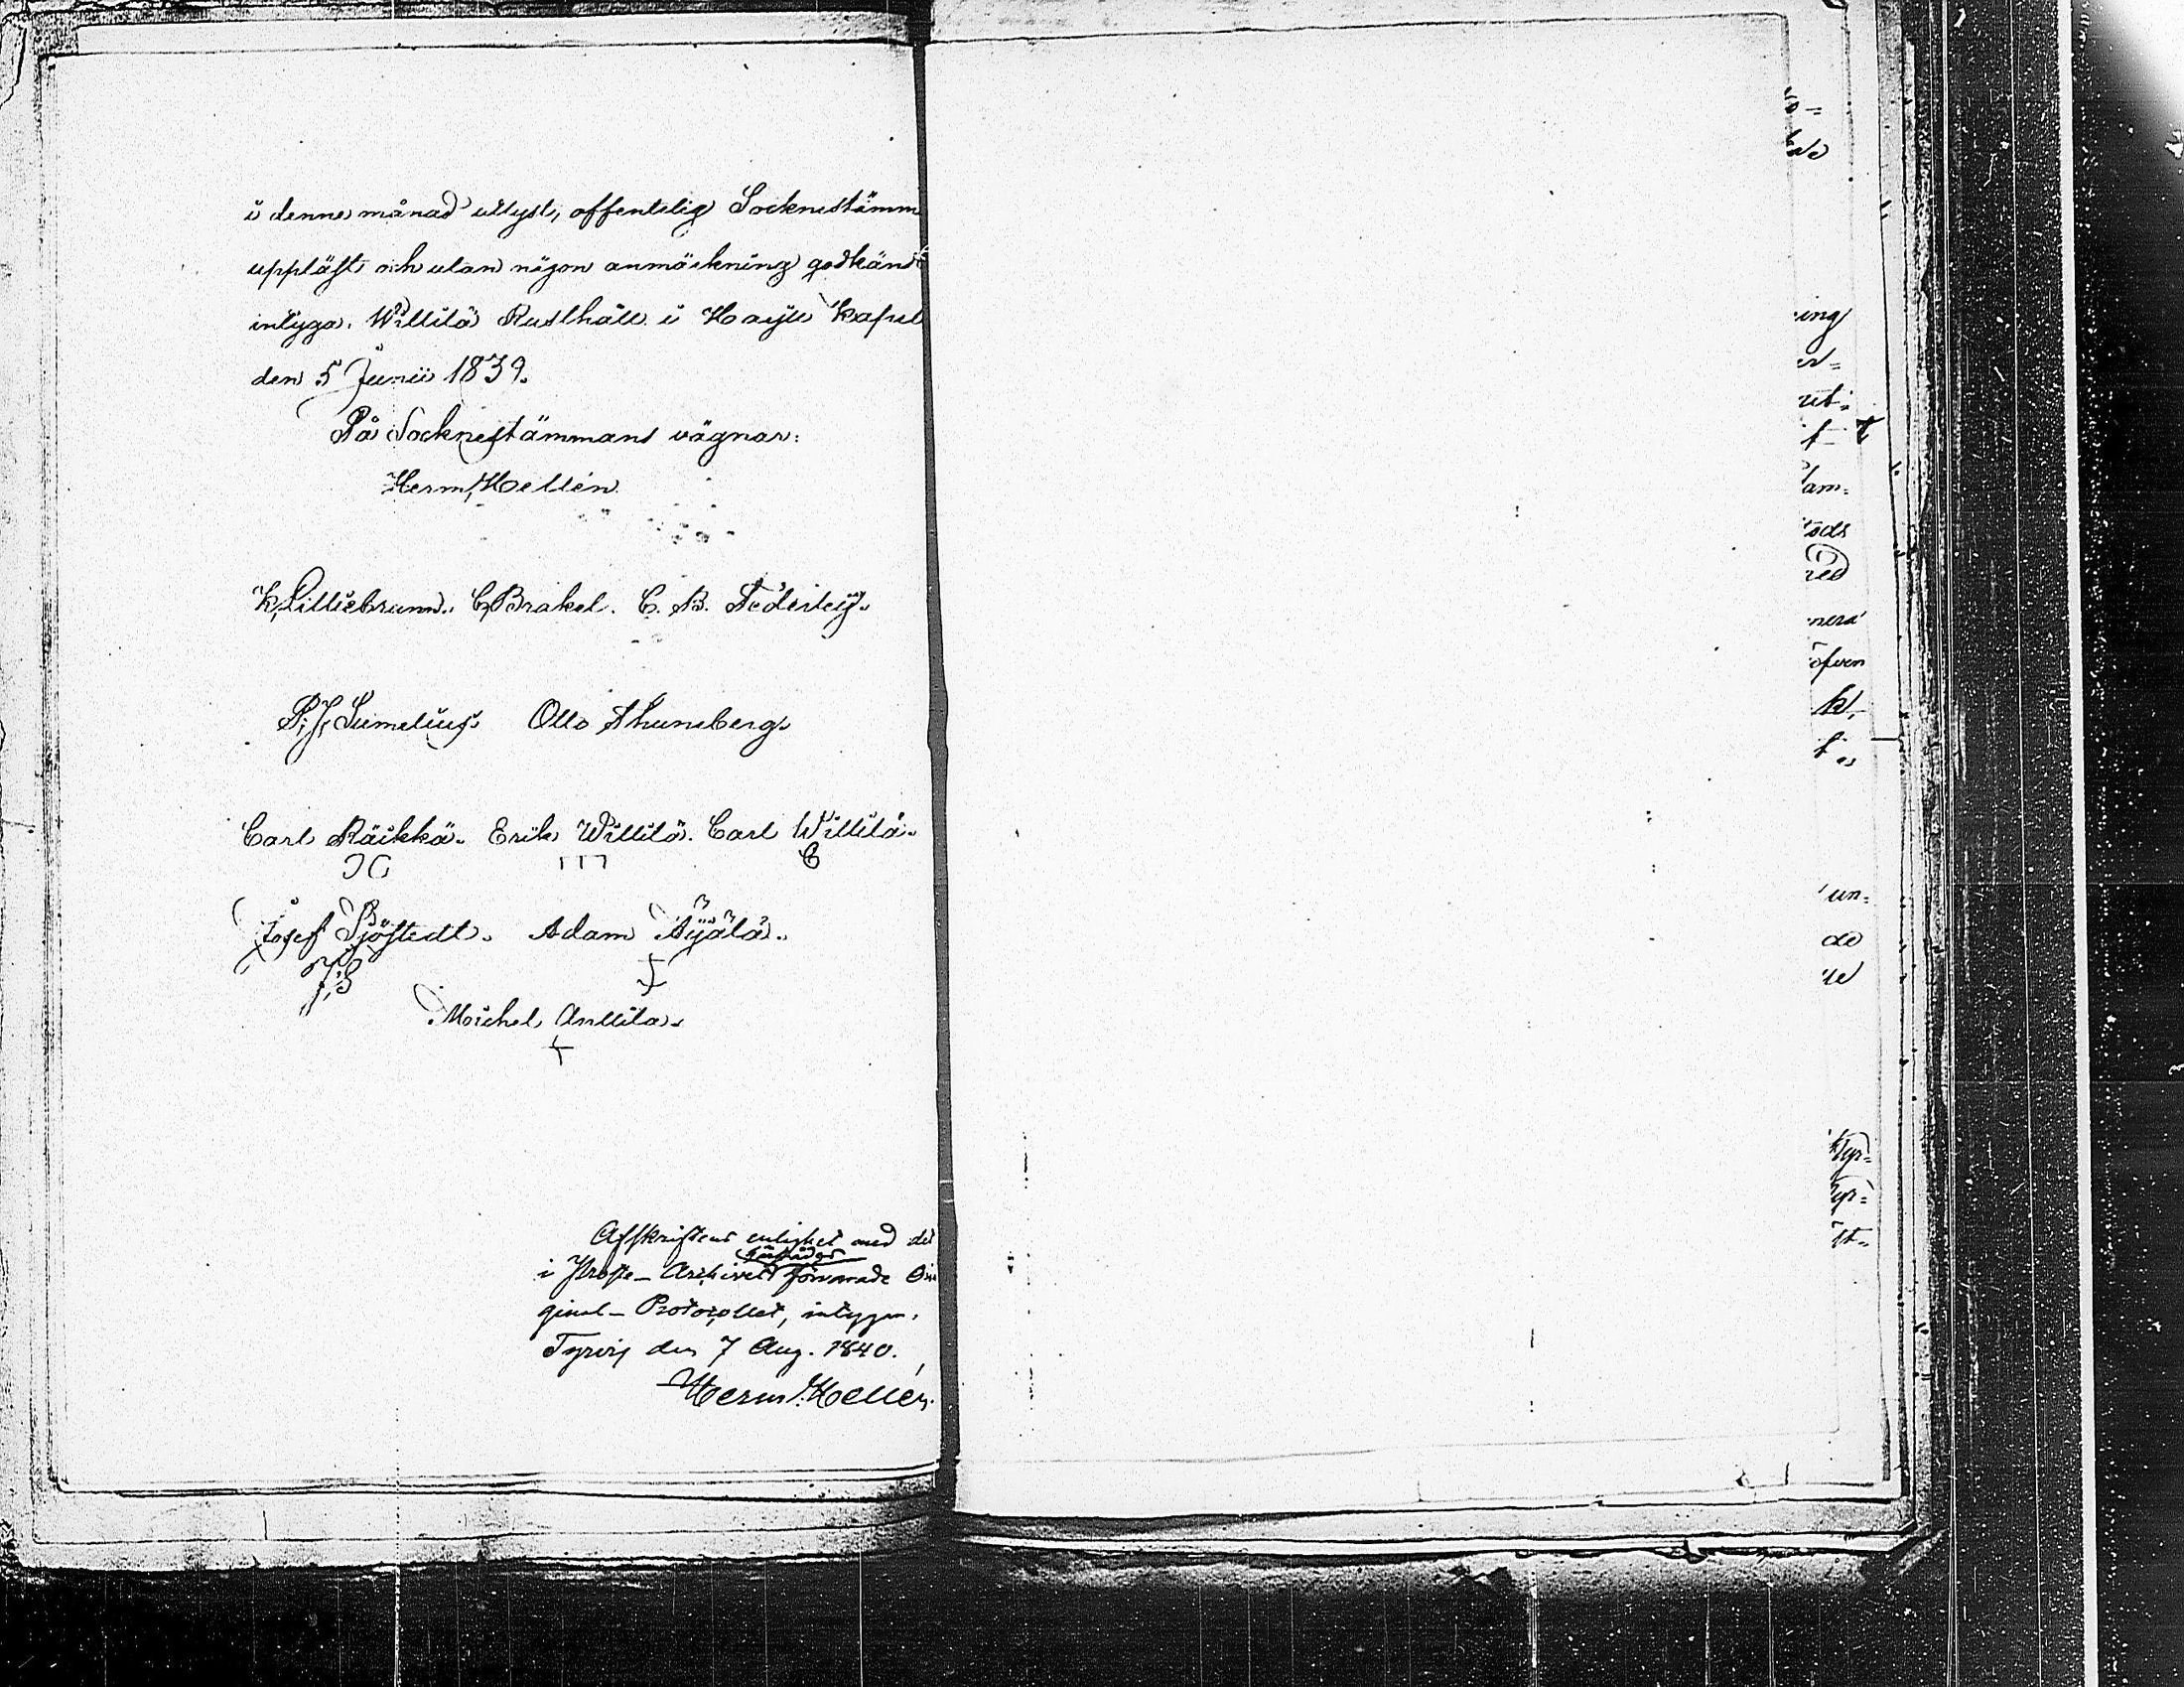 i denne månad utlyst, offentelig Socknestämm
uppläst och utan någon anmärkning godkänd
intyga. Willilä Rusthåll i Harju Kapel
den 5 Junii 1839.
På Socknestämmans vägnar:
Herm, Hellén
K, Lilliebrunn. C, Brakel. C. B. Federley.
P. J. Sumelius. Otto Thunberg.
Carl Räikkä. Erik Willilä. Carl Willilä.
C
Josef Sjöstedt. Adam Äÿälä.
J, S
Michel Anttila.
Afskriftens enlighet med det
härstädes
i Proste-Archivet förvarade Ori
ginal-Protocollet, intygar.
Tyrvis den 7 Aug. 1840.
Herm. Hellén.
ing
am=
nera
öfver
un=
de
Tyr=